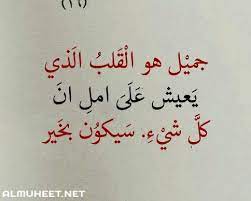 (١٦)
جميْل هو الْقَلبُ الَذي
يَعيش عَلَىَ امل انَ
كلَّ شيْءِ. سَيكوُن بخَير
ALMUHEET.NET